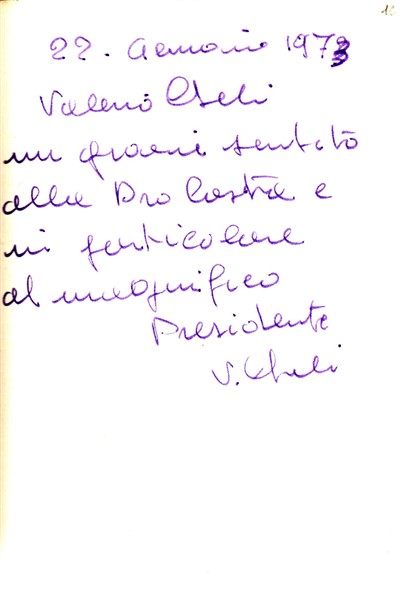 22. Gennaio 1973
Valerio Cheli
un grazie sentito
alla Pro Costa e
in particolare
al magnifico
Presidente
V. Cheli